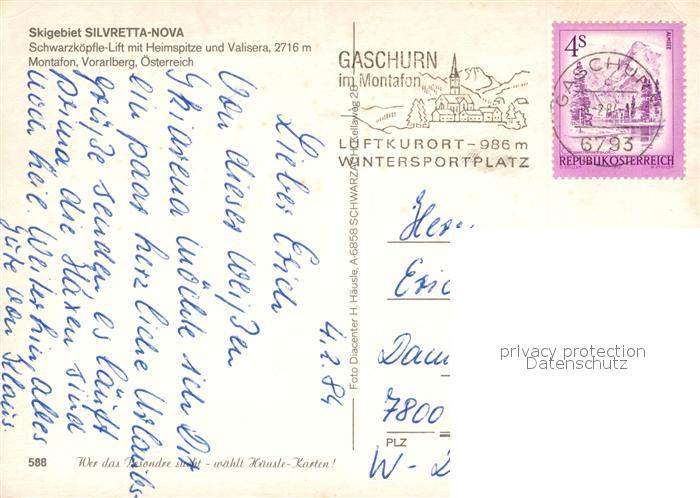 Skigebiet SILVRETTA-NOVA
Schwarzköpfle-Lift mit Heimspitze und Valisera, 2716 m
Montafon, Vorarlberg, Österreich
4.2.84
Lieber Erich
Von dieser weißen
Skiarena möchte ich Dir
ein paar herzliche Urlaubs-
grüße senden, es läuft
prima die Haxen sind
noch heil. Weiterhin alles
Gute von Klaus.
588
Wer das Besondre sucht - wählt Häusle-Karten!
Foto Diacenter H. Häusle, A-6858 SCHWARZACH, Kellaweg 28
GASCHURN
im Montafon
LUFTKURORT-986 m
WINTERSPORTPLATZ
4S
ALMSEE
REPUBLIK ÖSTERREICH
GASCHURN
6793
Herr
Eric
7800
PLZ
W-
privacy protection
Datenschutz